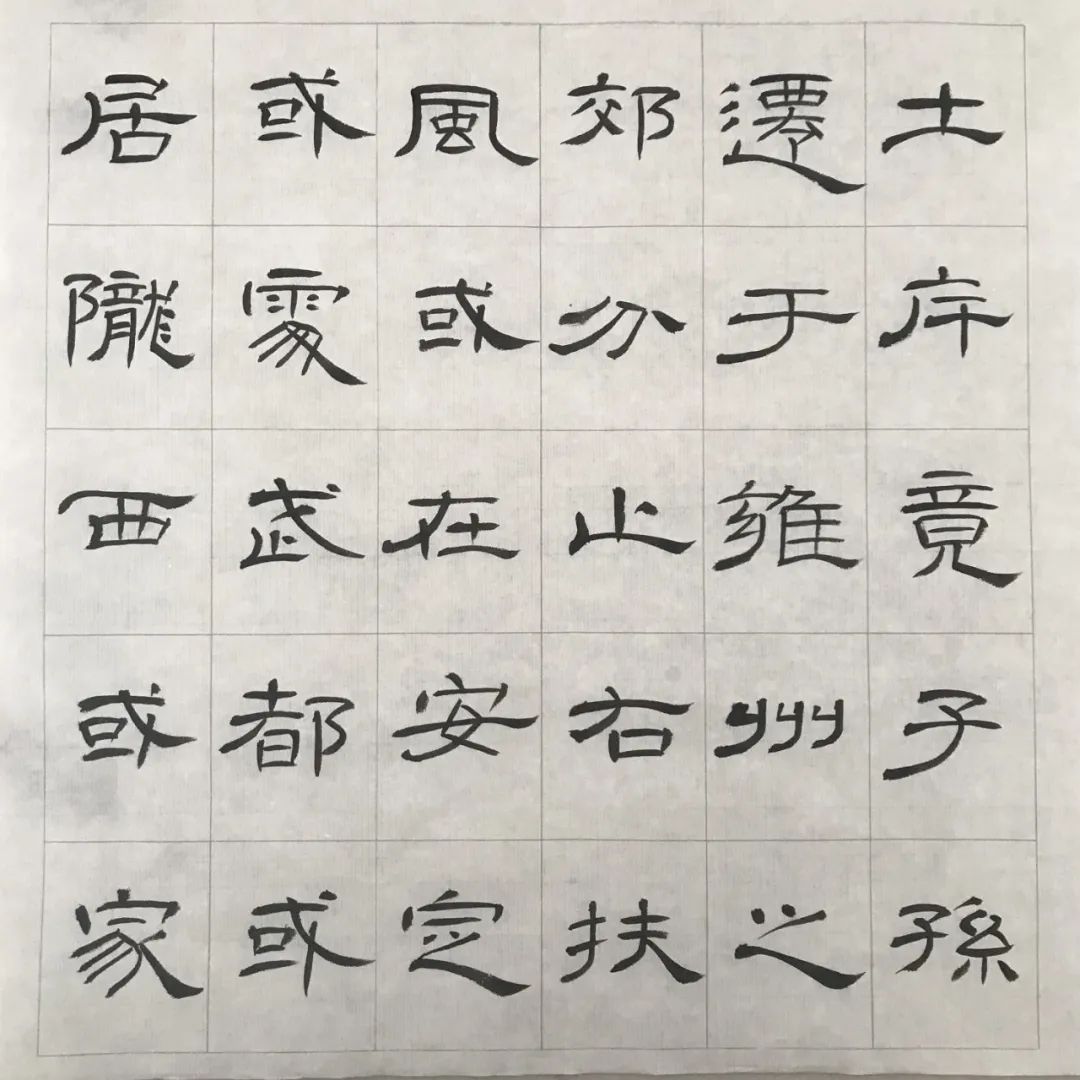 土斥竟子孫
遷于雍州之
郊分止右扶
風或在安定
或處武都或
居隴西或家